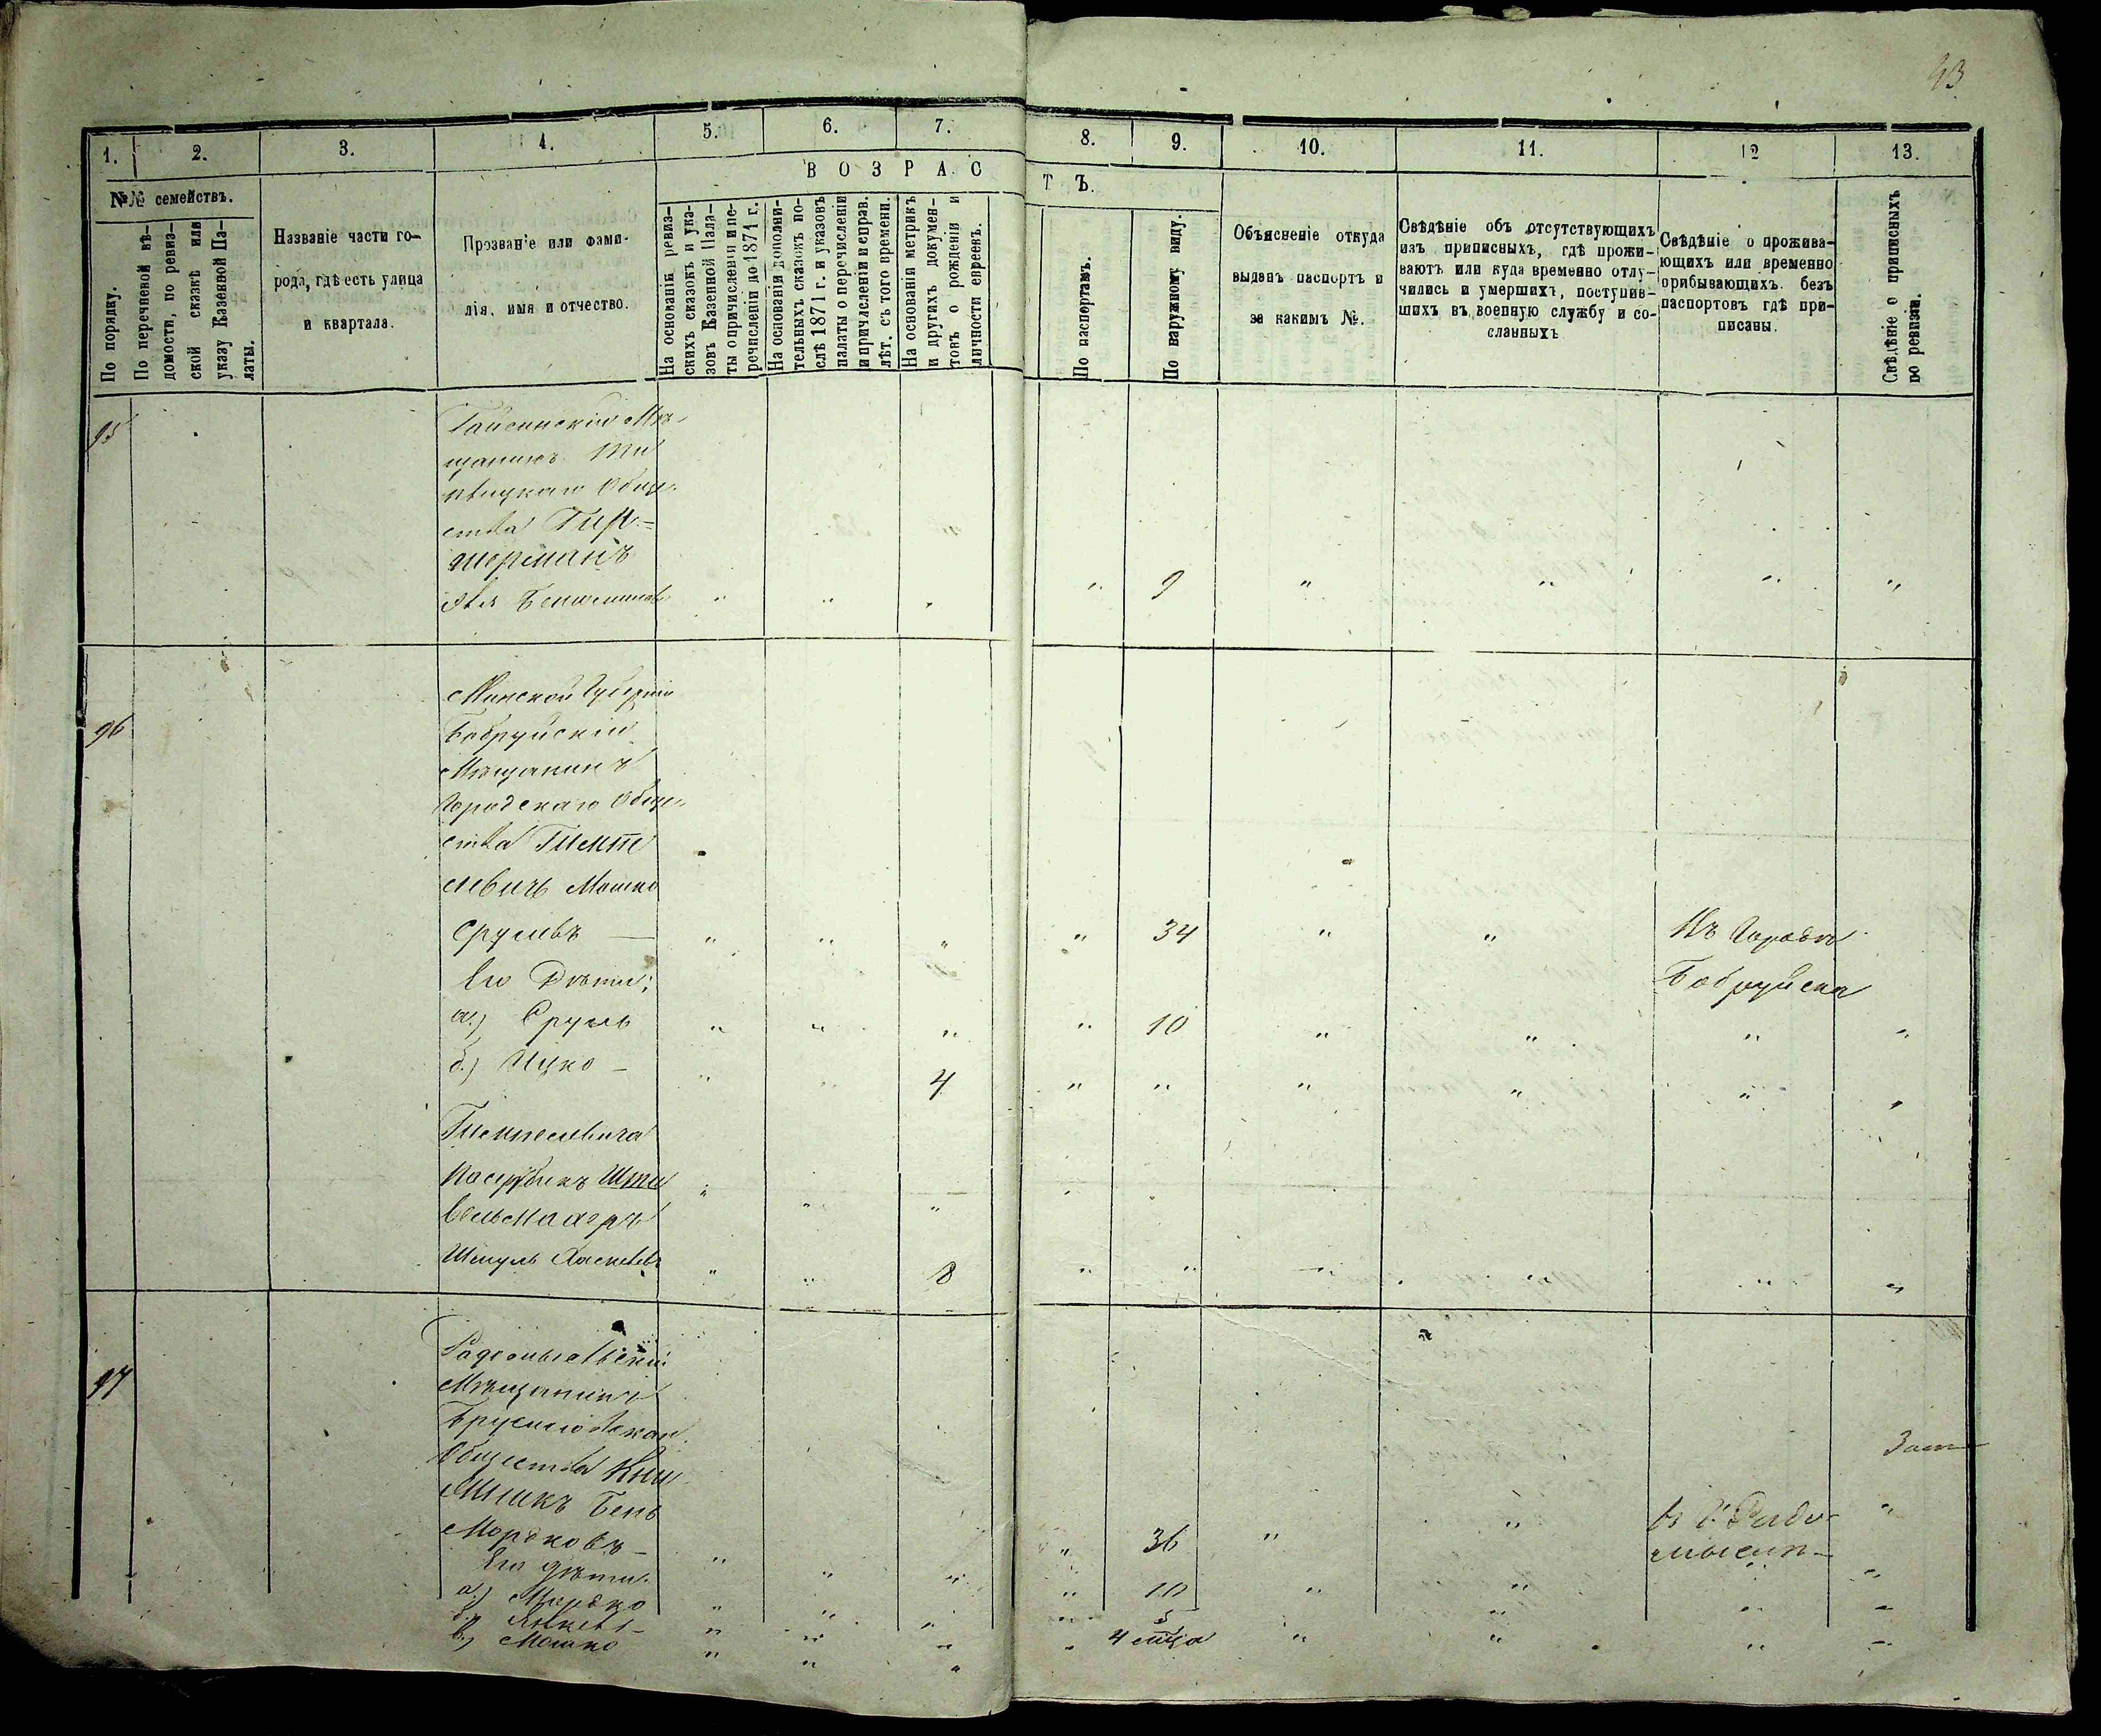 43
1. 2. 3. 4. 5. 6. 7. 8. 9. 10. 11. 12 13.
№№ семействъ.
По порядку.
По перечневой вѣ-
домости, по ревиз-
ской сказкѣ или
указу Казенной Па-
латы.
Названіе части го-
рода, гдѣ есть улица
и квартала.
Прозваніе или фами-
лія, имя и отчество.
ВОЗРАСТЪ.
На основаніи ревиз-
скихъ сказокъ и ука-
зовъ Казенной Пала-
ты о причисленіи и пе-
речисленіи до 1871 г.
На основаніи дополни-
тельныхъ сказокъ по-
слѣ 1871 г. и указовъ
палаты о перечисленіи
и причисленіи и справ.
лѣт. съ того времени.
На основаніи метрикъ
и другихъ докумен-
товъ о рожденіи и
личности евреевъ.
По паспортамъ.
По наружному виду.
Объясненіе откуда
выданъ паспортъ и
за какимъ №.
Свѣдѣніе объ отсутствующихъ
изъ приписныхъ, гдѣ прожи-
ваютъ или куда временно отлу-
чились и умершихъ, поступив-
шихъ въ военную службу и со-
сланныхъ
Свѣдѣніе о прожива-
ющихъ или временно
прибывающихъ безъ
паспортовъ гдѣ при-
писаны.
Свѣдѣніе о приписныхъ
по ревизіи.
95
Гайсинскій Мѣ-
щанинъ
Обще-
ства
шерманъ
" " " " 9 " " " "
96
Минской Губерніи
Бобруйскій
Мѣщанинъ
Городскаго Обще-
ства
левичъ Мошко
Срулевъ — " " " " 34 " " Въ Городѣ
Его Дѣти; Бобруйска
а.) Сруль " " " " 10 " " " "
б.) Ицко - " " 4 " " " " " "
вельмахеръ " " "
Шмуль " " 8 " " " " " "
97
Радомысльскій
Мѣщанинъ
Брусиловскаго
Общества
Бень
Мордковъ - " " " " 36 " " въ г. Радо- "
Его дѣти. мыслѣ -
а.) Мордко " " " " 10 " " " "
б.) " " " " 5 " " " "
в.) Мошко " " " " 4 " " " "